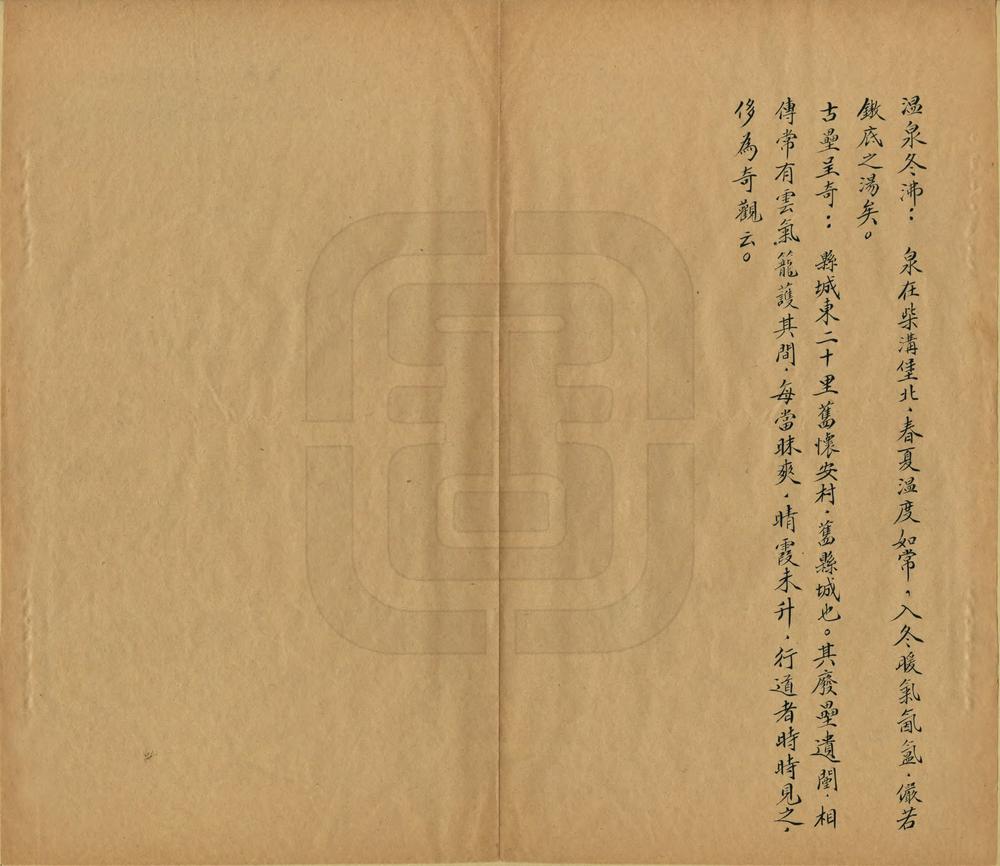 温泉冬沸：　泉在柴溝堡北，春夏温度如常，入冬暖氣氤氳，儼若
鍬底之湯矣。
古壘呈奇：　縣城東二十里舊懷安村，舊縣城也。其廢壘遺闉，相
傳常有雲氣籠護其間，每當昧爽，晴霞未升，行道者時時見之，
侈為奇觀云。